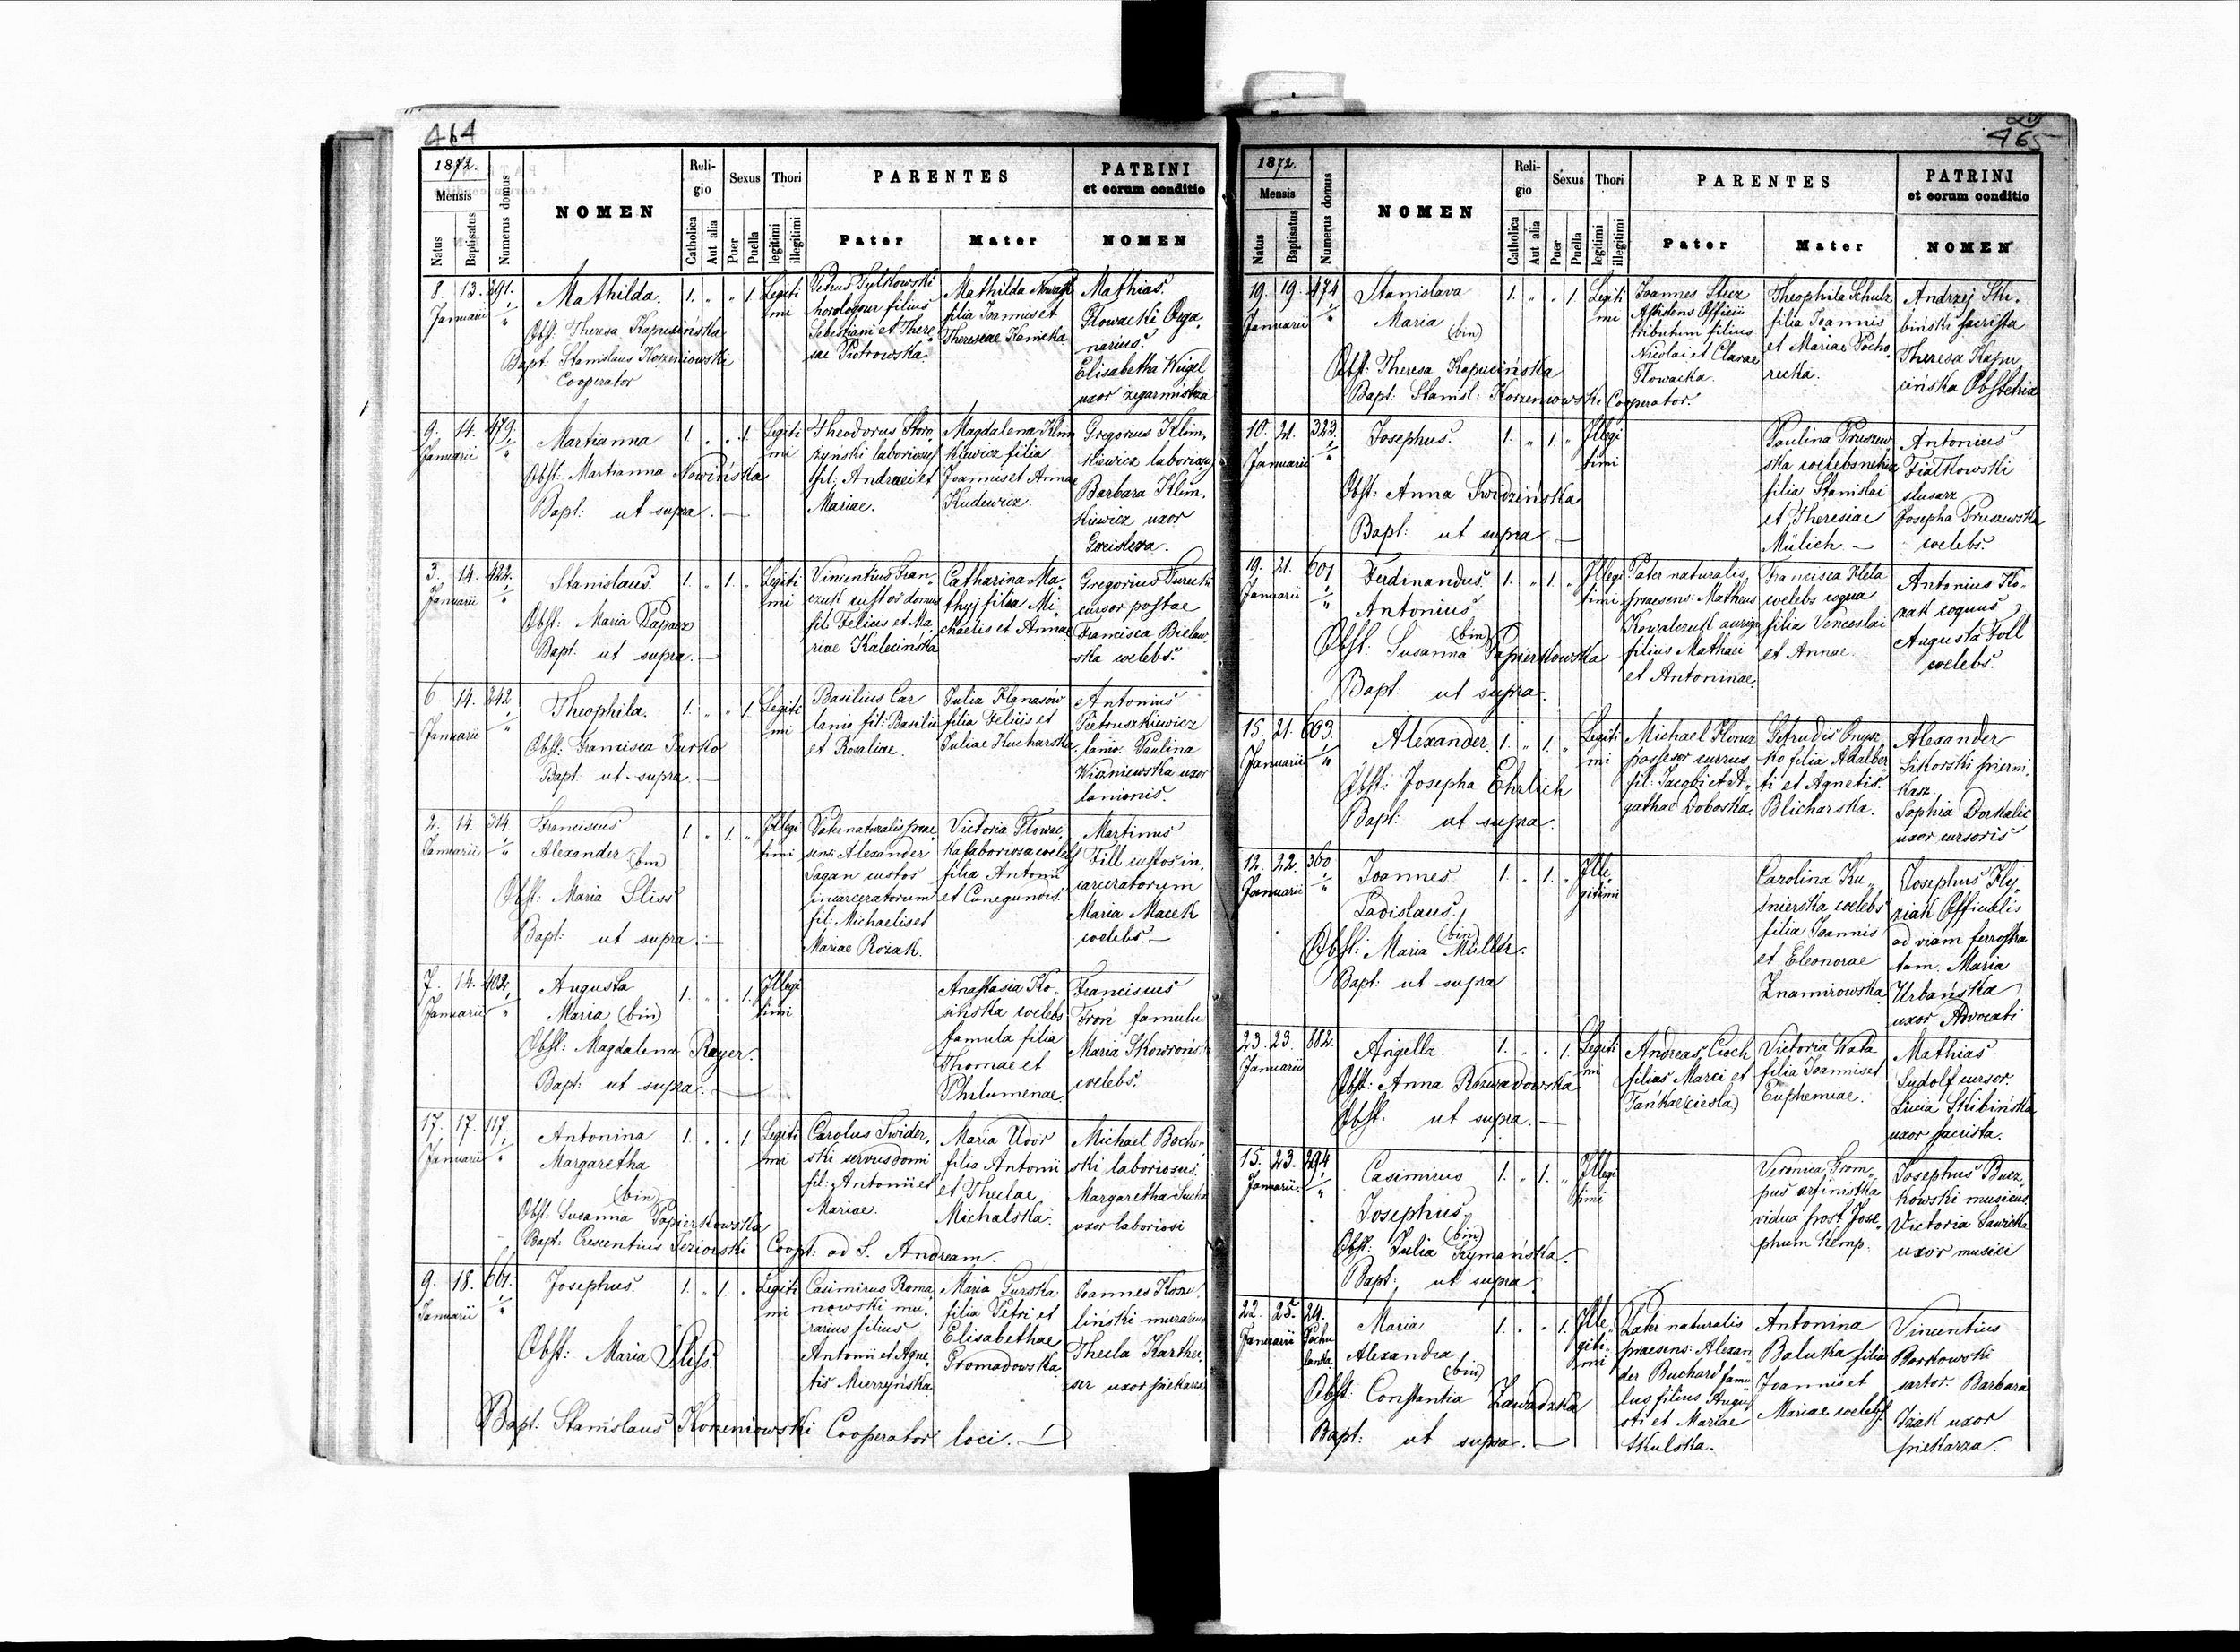 464
1872.
Mensis
Natus
Baptisatus
Numerus domus
NOMEN
Religio
Catholica
Aut alia
Sexus
Puer
Puella
Thori
legitimi
illegitimi
PARENTES
Pater
Mater
PATRINI
et eorum conditio
NOMEN
8. 13. 291.
Januarii
Mathilda.
Obst. Theresa Kapucińska
Bapt. Stanislaus Korzeniowski
Cooperator
1. " " 1. Legiti
mi
Petrus
horologpur filius
Sebestjani et There
sae Piotrowska.
Mathilda
filia Joannis et
Theresiae Kanicka
Mathias
Głowacki Orga
narius.
Elisabetha Kügel
uxor zegarmistrza
9. 14. 479.
Januarii
Martianna
Obst. Martianna Nowińska
Bapt: ut supra.
1 " " 1. Legiti
mi
Theodorus Skoro
żynski laboriosus
fil: Andreae et
Mariae.
Magdalena Klim
kiewicz filia
Joannis et Annae
Kudewicz.
Gregorius Klim,
kiewicz laboriosus
Barbara Klim,
kiewicz uxor
3. 14. 422.
Januarii
Stanislaus.
Obst: Maria Papacz
Bapt: ut supra.
1. " 1. " Legiti
mi
Vincentius Fran
czuk custor domus
fil: Felicis et Ma
riae Kalecińska
Catharina Ma
thyj filia Mi
chaelis et Annae
Gregorius
cursor postae
Francisca Bielaw
ska coelebs.
6. 14. 242
Januarii
Theophila.
Obst: Francisca Jurko
Bapt: ut supra.
1. " " 1. Legiti
mi
Basilius Car
lanio fil: Basilii
et Rosaliae.
Julia Klanasów
filia Felicis et
Juliae Kucharska
Antonius
Pietruszkiewicz
lanio. Paulina
Wiśniewska uxor
lanionis.
2. 14. 314.
Januarii
Franciscus
Alexander (bin)
Obst: Maria Sliss
Bapt: ut supra.
1. " 1. " Illegi
timi
Pater naturalis prae
sens: Alexander
Sagan custor
incarceratorum
fil: Michaelis et
Mariae Rożak.
Victoria Głowac,
ka laboriosa coelebs
filia Antonii
et Cunegundis.
Martinus
Fill custos in,
carceratorum
Maria Macek
coelebs.
7. 14. 402.
Januarii
Augusta
Maria (bin)
Obst: Magdalena Rayer.
Bapt: ut supra.
1. " " 1. Illegi
timi
Anastasia Ko
sińska coelebs
famula filia
Thomae et
Philumenae.
Franciscus
Froń famulu
Maria Skowrońs
coelebs.
17. 17. 117.
Januarii
Antonina
Margaretha
(bin)
Obst. Susanna Papierkowska
Bapt: Crescentius Jeziorski Coop: ad S. Andream.
1. " " 1. Legiti
mi
Carolus Swider,
ski servus domi
fil: Antonii et
Mariae.
Maria Udor
filia Antonii
et Theclae
Michalska.
Michael Bocheń
ski laboriosus.
Margaretha Sucha
uxor laboriosi
9. 18. 661.
Januarii
Josephus.
Obst: Maria Sliss.
1. " 1. " Legiti
mi
Casimirus Roma
nowski mu,
rarius filius
Antonii et Agne
tis Mierzyńska
Maria Gurska
filia Petri et
Elisabethae
Gromadowska
Joannes Kosz
liński murarius
Thecla Karthei
ser uxor piekarza
Bapt: Stanislaus Korzeniowski Cooperator loci.
465
1872.
Mensis
Natus
Baptisatus
Numerus domus
NOMEN
Religio
Catholica
Aut alia
Sexus
Puer
Puella
Thori
legitimi
illegitimi
PARENTES
Pater
Mater
PATRINI
et eorum conditio
NOMEN
19. 19. 474
Januarii
Stanislava
Maria
(bin)
Obst: Theresa Kapucińska
Bapt: Stanisl: Korzeniowski Cooperator.
1. " " 1 Legiti
mi
Joannes Stecz
Assistens Officii
tributum filius
Nicolai et Clarae
Głowacka.
Theophila Schulz
filia Joannis
et Mariae Pocho
recka.
Andrzej Ski,
biński sacrista
Theresa Kapu
cińska Obstetrix
10. 21. 323.
Januarii
Josephus.
Obst: Anna Swidzińska
Bapt: ut supra.
1. " 1. " Illegi
timi
Paulina Pruszew
ska coelebs
filia Stanislai
et Theresiae
Mülich.
Antonius
Fiałkowski
slusarz
Josepha Pruszewska
coelebs.
19. 21. 601
Januarii
Ferdinandus.
Antonius
(bin)
Obst: Susanna Papierkowska
Bapt: ut supra.
1. " 1. " Illegi
timi
Pater naturalis,
praesens: Matheus
Kowalczuk auriga
filius Mathaei
et Antoninae.
Francisca Kleta
coelebs coqua
filia Venceslai
et Annae.
Antonius Ko
zak coquus
Augusta Foll
coelebs.
15. 21. 603.
Januarii
Alexander.
Obst: Josepha Ehrlich
Bapt: ut supra.
1. " 1. " Legiti
mi
Michael Honer
possesor currus
fil: Jacobi et A
gathae Doboska.
Getrudis Onysz
ko filia Adalber
ti et Agnetis.
Blicharska.
Alexander
Sikorski pierni,
karz
Sophia Dorkalic
uxor cursoris
12. 22. 360
Januarii
Joannes
Ladislaus.
(bin)
Obst: Maria Müller.
Bapt: ut supra
1. " 1. " Ille
gitimi
Carolina Ku
śnierska coelebs
filia Joannis
et Eleonorae
Znamirowska
Josephus Kly
ziak Officialis
ad viam ferrostra
tam. Maria
Urbańska
uxor Advocati
23. 23. 882.
Januarii
Angella.
Obst: Anna Rozwadowska
Obst. ut supra.
1. " " 1. Legiti
mi
Andreas Cioch
filius Marci et
Tańkae (ciesla)
Victoria Wata
filia Joannis et
Euphemiae.
Mathias
Ludolf cursor.
Lucia Skibińska
uxor sacrista.
15. 23. 294
Januarii.
Casimirus
Josephus.
(bin)
Obst: Julia Szymańska.
Bapt: ut supra.
1. " 1. " Illegi
timi
Veronica From
pus
vidua post Jose,
phum Kemp.
Josephus Bucz,
kowski musicus.
Victoria Sawicka
uxor musici
22. 25. 24.
Januarii
Maria
Alexandra
(bin)
Obst: Constantia Zawadzka
Bapt: ut supra.
1. " " 1. Ille
giti
mi
Pater naturalis
praesens: Alexan
der Buchard famu
lus filius Augus
ti et Mariae
Skulska.
Antonina
Baluka filia
Joannis et
Mariae coelebs.
Vincentius
Borkowski
sartor. Barbara
Iziak uxor
piekarza.